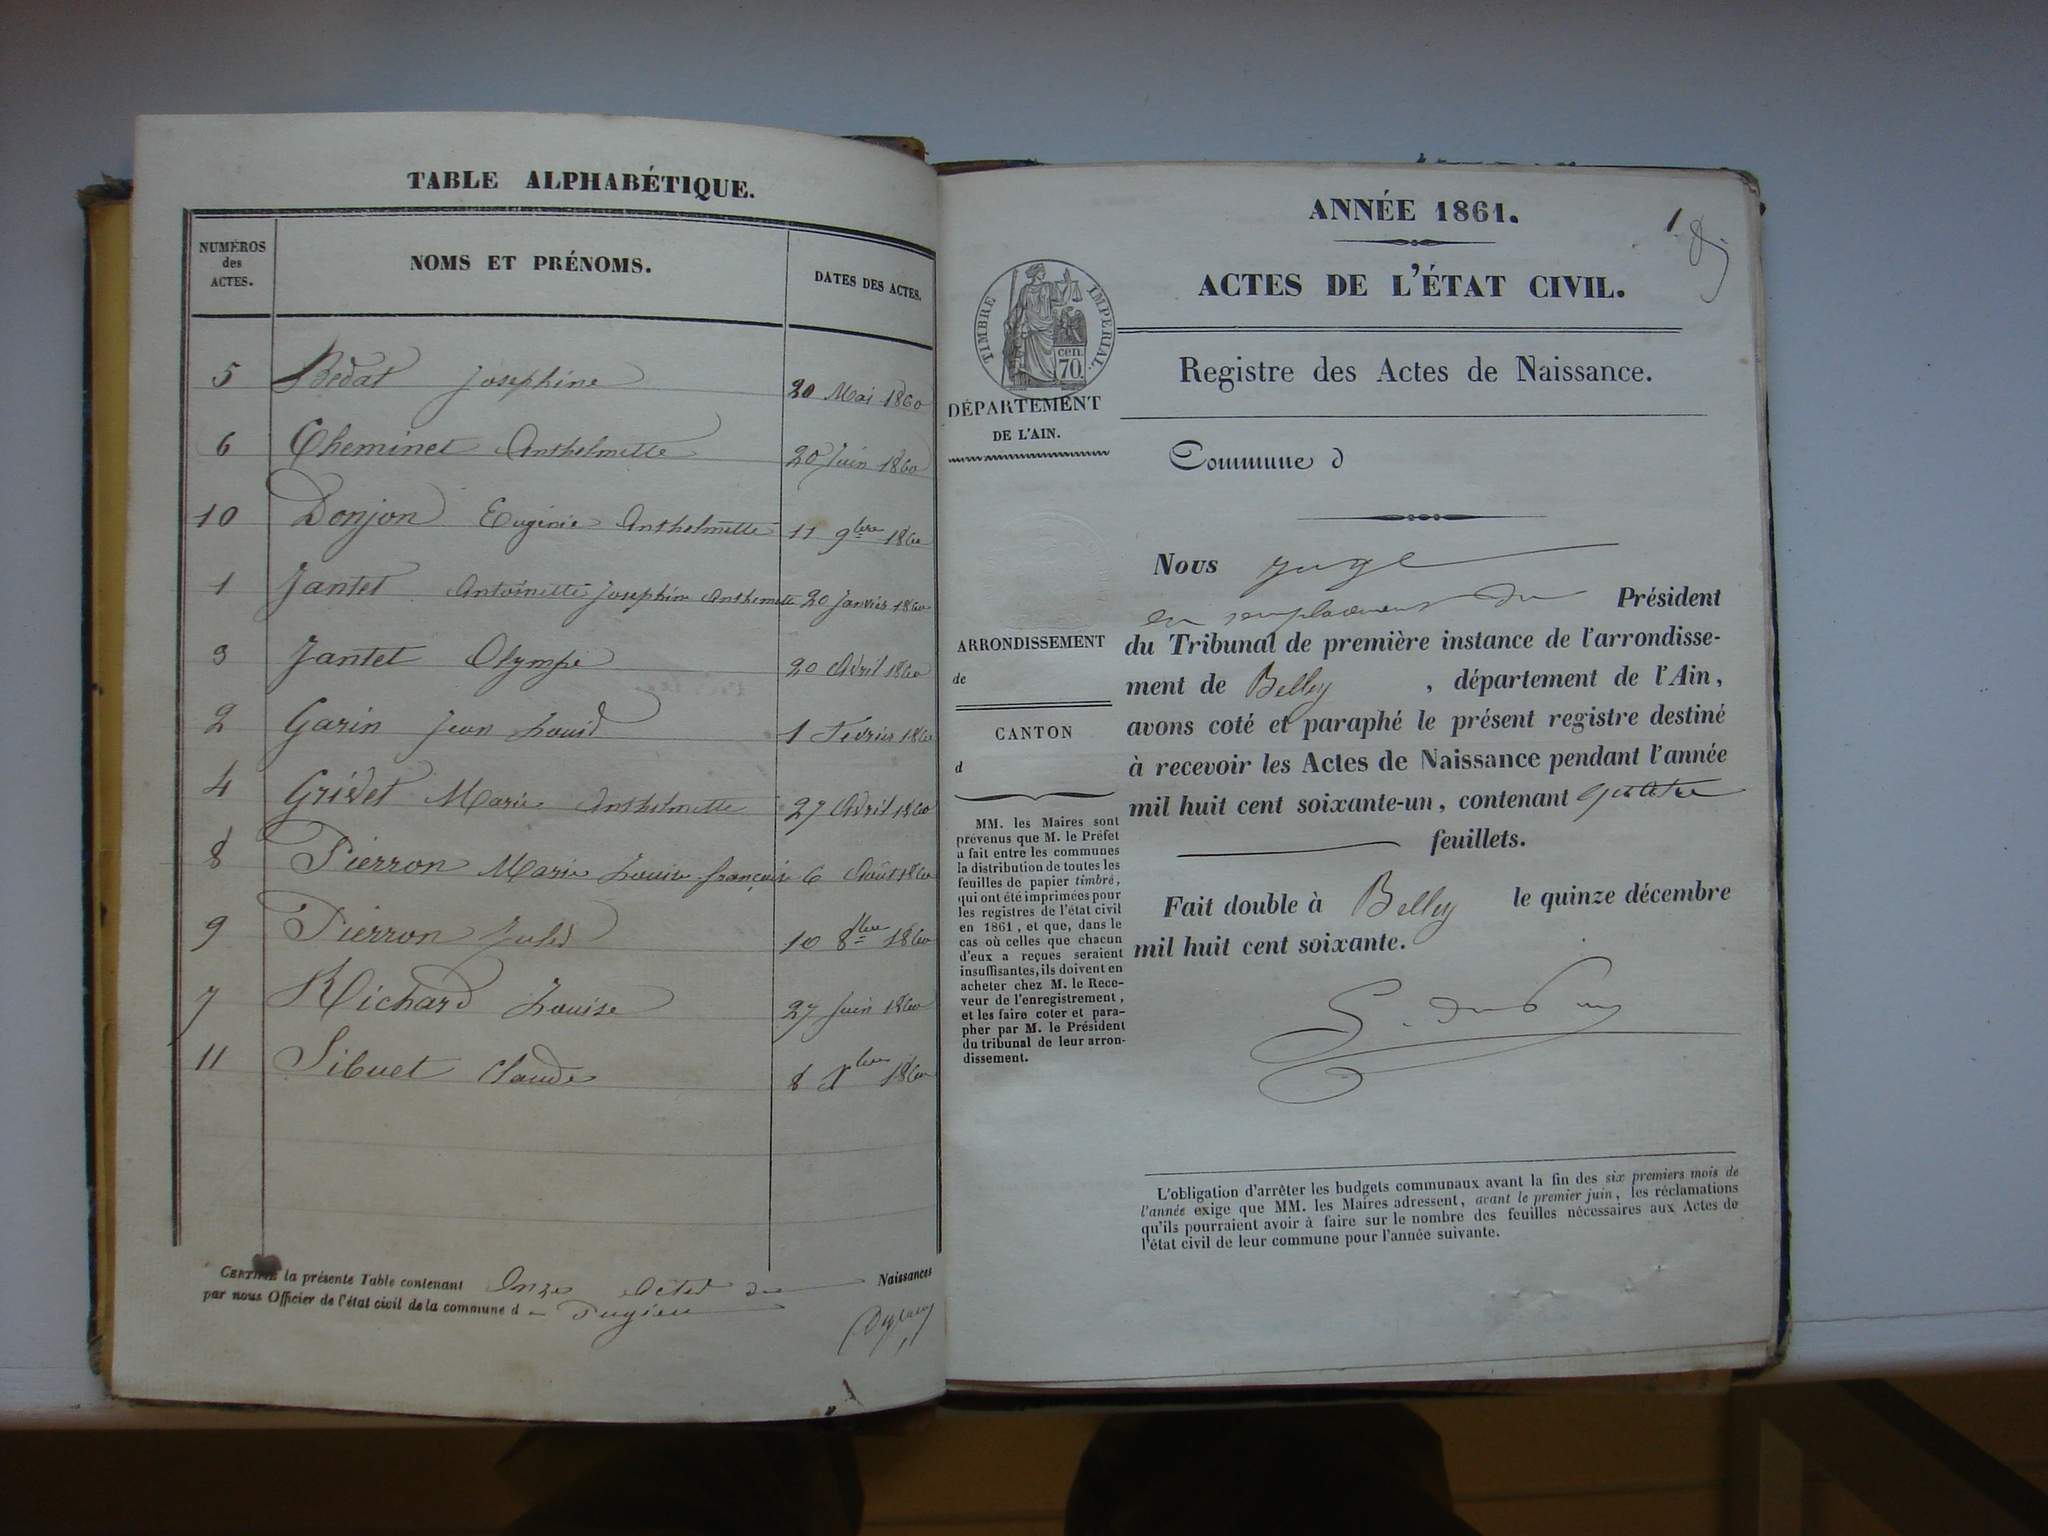 TABLE ALPHABÉTIQUE.
NUMÉROS des ACTES. NOMS ET PRÉNOMS. DATES DES ACTES.
5 Bedat Josephine 20 Mai 1860
6 Cheminet Anthelmette 20 Juin 1860
10 Donjon Eugénie Anthelmette 11 9bre 1860
1 Jantet Antoinette Josephine Anthelmette 20 Janvier 1860
3 Jantet Olympe 20 Avril 1860
2 Garin Jean Louis 1 Février 1860
4 Grivet Marie Anthelmette 27 Avril 1860
8 Pierron Marie Louise françoise 6 Août 1860
9 Pierron Jules 10 8bre 1860
7 Richard Louise 27 Juin 1860
11 Sibuet Claude 8 Xbre 1860
CERTIFIÉ la présente Table contenant Onze Actes de Naissances
par nous Officier de l'état civil de la commune d e Pugieu
ANNÉE 1861.
1
ACTES DE L'ÉTAT CIVIL.
TIMBRE IMPERIAL
cen. 70.
Registre des Actes de Naissance.
DÉPARTEMENT
DE L'AIN.
Commune d
ARRONDISSEMENT
de
CANTON
d
MM. les Maires sont
prévenus que M. le Préfet
a fait entre les communes
la distribution de toutes les
feuilles de papier timbré,
qui ont été imprimées pour
les registres de l'état civil
en 1861, et que, dans le
cas où celles que chacun
d'eux a reçues seraient
insuffisantes, ils doivent en
acheter chez M. le Rece-
veur de l'enregistrement,
et les faire coter et para-
pher par M. le Président
du tribunal de leur arron-
dissement.
Nous juge
en remplacement du Président
du Tribunal de première instance de l'arrondisse-
ment de Belley, département de l'Ain,
avons coté et paraphé le présent registre destiné
à recevoir les Actes de Naissance pendant l'année
mil huit cent soixante-un, contenant quatre
feuillets.
Fait double à Belley le quinze décembre
mil huit cent soixante.
L'obligation d'arrêter les budgets communaux avant la fin des six premiers mois de
l'année exige que MM. les Maires adressent, avant le premier juin, les réclamations
qu'ils pourraient avoir à faire sur le nombre des feuilles nécessaires aux Actes de
l'état civil de leur commune pour l'année suivante.